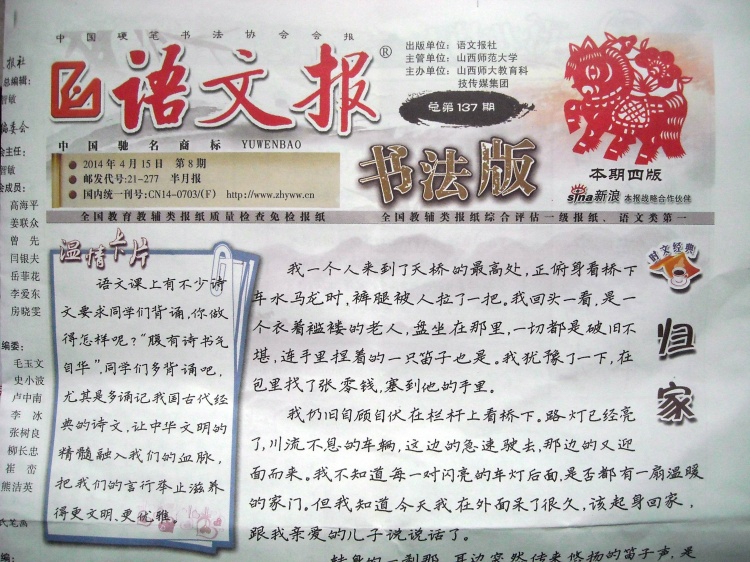 中国硬笔书法协会会报
语文报®
中国驰名商标 YUWENBAO
出版单位：语文报社
主管单位：山西师范大学
主办单位：山西师大教育科
技传媒集团
总第137期
2014年4月15日 第8期
邮发代号:21-277 半月报
国内统一刊号:CN14-0703/(F) http://www.zhyww.cn
书法版
本期四版
sina新浪 本报战略合作伙伴
全国教育教辅类报纸质量检查免检报纸 全国教辅类报纸综合评估一级报纸、语文类第一
报社
总编辑:
智敏
编委会
会主任:
智敏
会成员:
高海平
姜联众
曾先
闫银夫
岳菲花
李爱东
房晓雯
编委:
毛玉文
史小波
卢中南
李冰
张树良
柳长忠
崔峦
熊洁英
氏笔高
编:
温情卡片
语文课上有不少诗
文要求同学们背诵,你做
得怎样呢?“腹有诗书气
自华”,同学们多背诵吧,
尤其是多诵记我国古代经
典的诗文,让中华文明的
精髓融入我们的血脉,
把我们的言行举止滋养
得更文明、更优雅。
时文经典
归家
我一个人来到了天桥的最高处,正俯身看桥下
车水马龙时,裤腿被人拉了一把。我回头一看,是一
个衣着褴褛的老人,盘坐在那里,一切都是破旧不
堪,连手里捏着的一只笛子也是。我犹豫了一下,在
包里找了张零钱,塞到他的手里。
我仍旧自顾自伏在栏杆上看桥下。路灯已经亮
了,川流不息的车辆,这边的急速驶去,那边的又迎
面而来。我不知道每一对闪亮的车灯后面,是否都有一扇温暖
的家门。但我知道今天我在外面呆了很久,该起身回家,
跟我亲爱的儿子说说话了。
转身的一刹那,耳边突然传来悠扬的笛子声,是